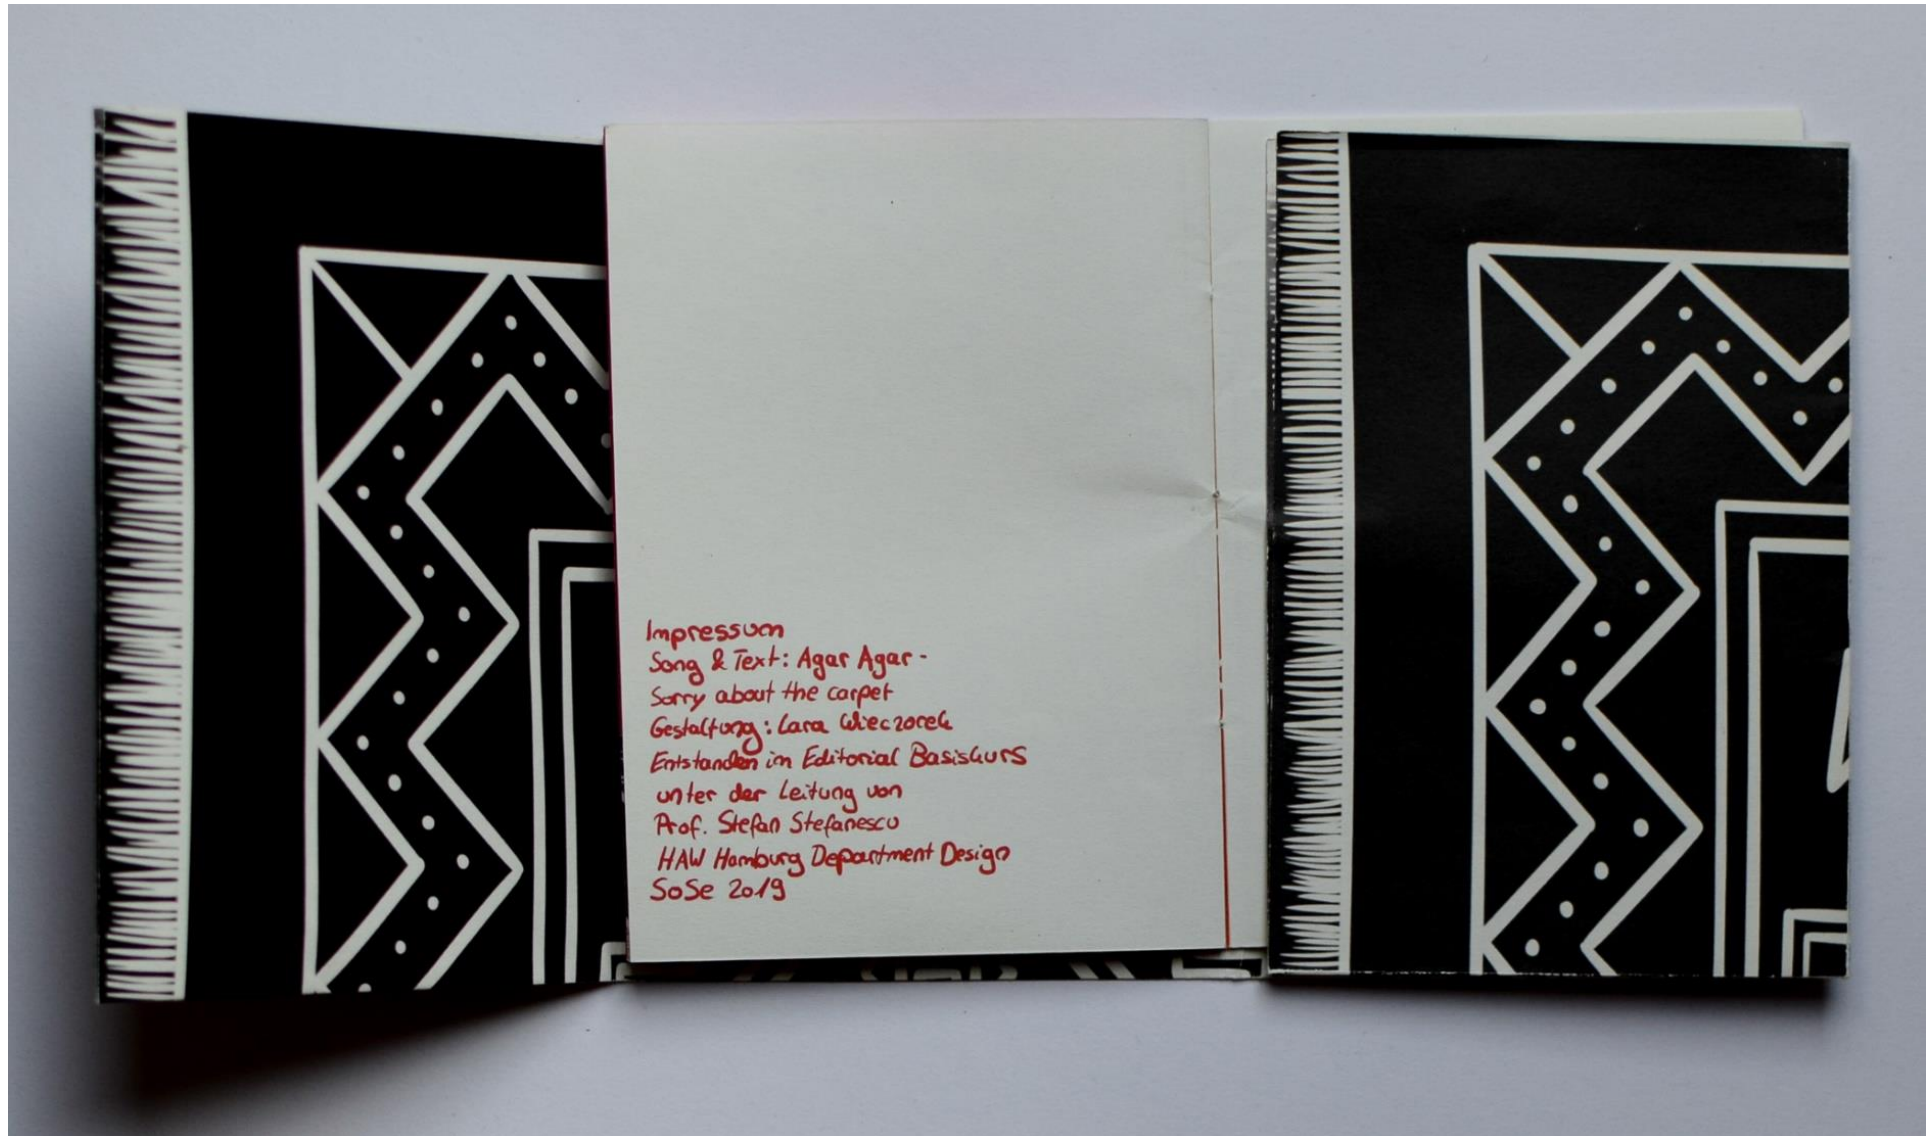 Impressum
Song & Text: Agar Agar -
Sorry about the carpet
Gestaltung: Lara Wieczorek
Entstanden im Editorial Basiskurs
unter der Leitung von
Prof. Stefan Stefanescu
HAW Hamburg Department Design
SoSe 2019